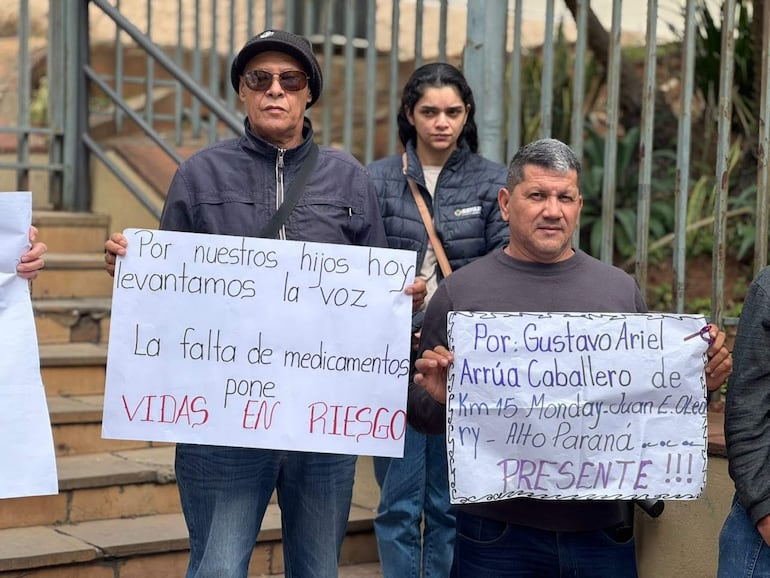 Por nuestros hijos hoy
levantamos la voz
La falta de medicamentos
pone
VIDAS EN RIESGO
Por: Gustavo Ariel
Arrúa Caballero de
Km 15 Monday-Juan E. OLea
ry - Alto Paraná
PRESENTE !!!